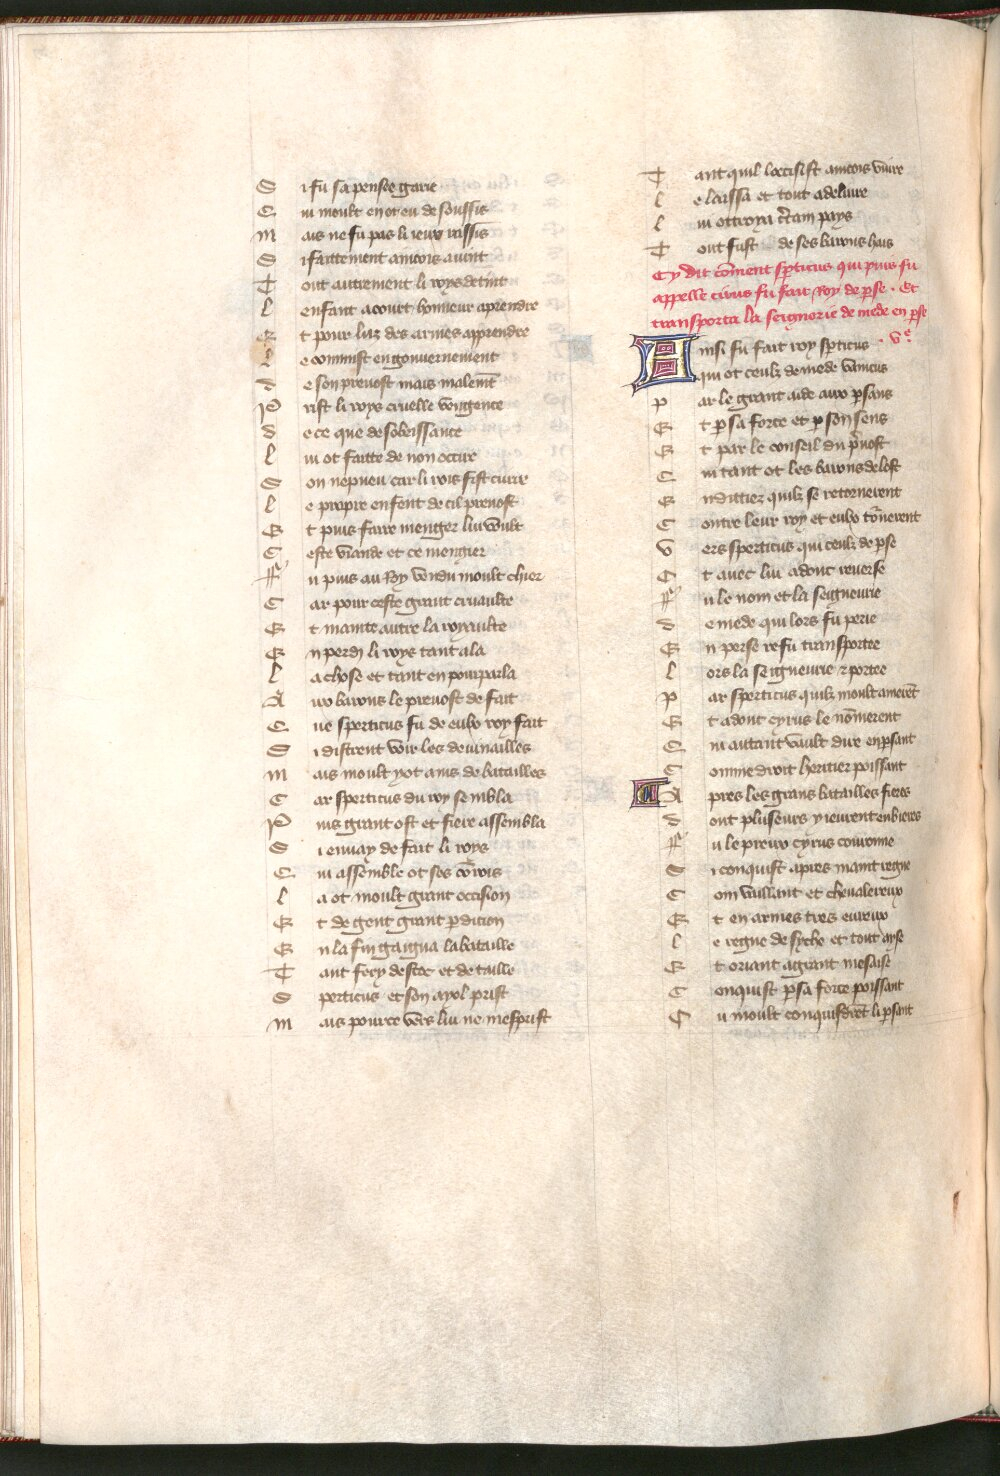 S i fu sa pensee garie
C ui moult en ot eu de soussis
M ais ne fu pas li ieux rassis
S i faittement aincois auint
T out autrement li roys detint
L enfant a court honneur aprendre
E t pour luz des armes apprendre
L e commist en gouuernement
D e son preuost mais malemt
P rist li roys cruelle vengence
D e ce que desobeissance
L ui ot faitte de non occire
S on nepueu car li rois fist cuire
L e propre enfent de cil preuost
E t puis faire menger lui voult
C este viande et ce mengier
F u puis au Roy vendu moult chier
C ar pour ceste grant cruaulte
E t mainte autre la royaulte
E n perdi li roys tant ala
L a chose et tant en pourparla
A ux barons le preuost de fait
Q ue sperticus fu de eulx roy fait
S i distrent voir les deuinailles
M ais moult y ot ains de batailles
C ar sperticus du roy sembla
P uis grant ost et fiere assembla
S i enuay de fait li roys
Q ui assemble ot ses courois
L a ot moult grant occision
E t de gent grant pdicion
E n la fin gaigna la bataille
T ant fery destoc et de taille
S perticus et son ayol prist
M ais pource vers lui ne mesprist
T ant quil loccisist aincois viure
L e laissa et tout a deliure
L ui ottroya certain pays
T out fust de ses barons hais
Cy dit coment spticus qui puis fu
appelle cirus fu fait Roy de pse . Et
transporta la seignorie de mede en pse
. ve
A insi fu fait roy spticus
Q ui ot ceulz de mede vaincus
P ar le grant aide aux psans
E t p sa force et p son sens
E t par le conseil du puost
Q ui tant ot les barons de lost
E nditiez quilz se retornerent
C ontre leur roy et eulx tornerent
V ers sperticus qui ceulz de pse
E t auec lui adont reuerse
F u le nom et la seigneurie
D e mede qui lors fu perie
E n perse refu transportee
L ors la seigneurie et portee
P ar sperticus quilz moult amerent
E t adont cyrus le nommerent
Q ui autant vault dire en psant
C omme droit heritier poissant
A pres les grans batailles fieres
D ont pluseurs y ieurent en bieres
F u le preux cyrus couronne
S i conquist apres maint regne
C om vaillant et cheualereux
E t en armes tres eureux
L e regne de syche et tout ayse
E t oriant a grant mesaise
C onquist p sa force poissant
E u moult conquisdrent li psant